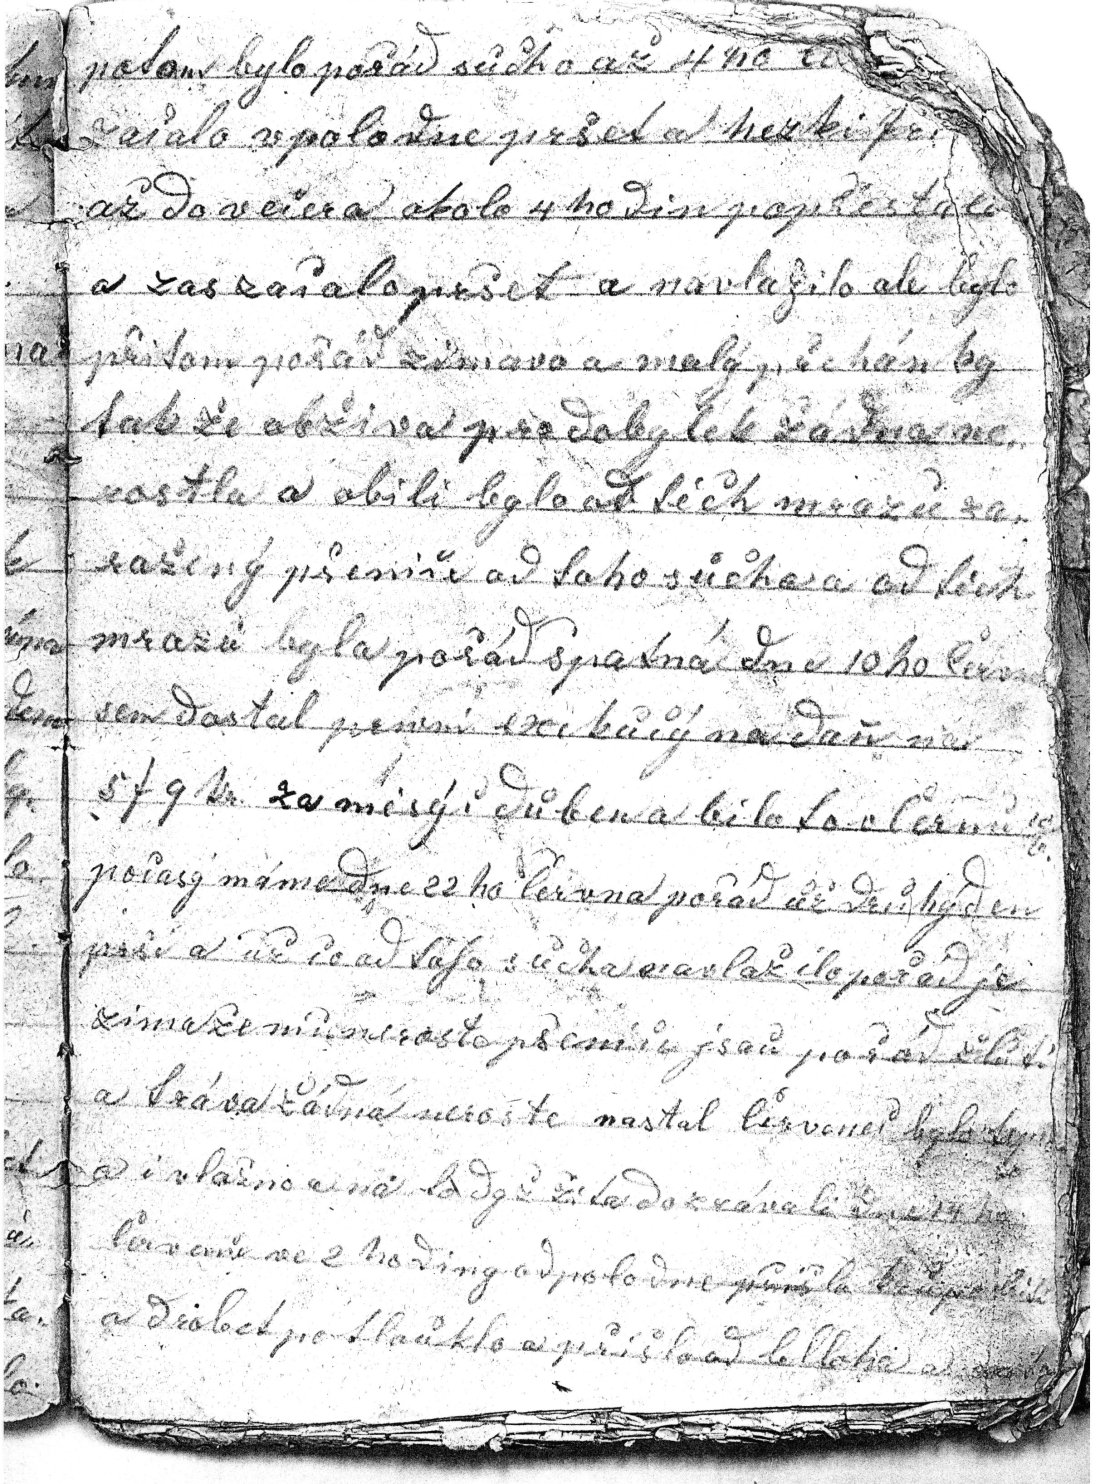 potom bylo pořád sůcho až 4 ho
začalo vpoledne pršet a hezki
až do večera okolo 4 hodin popřestalo
a zas začalo pršet a navlažilo ale bylo
přitom pořád zimavo a malý přehánky
tak že obživa prodobytek žádna ne,
rostla a obili bylo od těch mrazů za,
ražený pšeniče od toho sůcha a od těch
mrazů byla pořád špatná dne 10 ho červn
sem dostal prwní exikůcý na daň na
5 f 9 kr. za měsýc důben a bilo to v červnu
počasý máme dne 22 ho června pořád už druhý den
prší a už co od toho sůcha navlažilo pořád je
zima že nic neroste pšeniče jsou pořád žluti
a tráva žádná neroste nastal červenec bylo teplo
a i vlažno a na to dyž žita dozrávali dne 14 ho
červenci ve 2 hodiny odpoledne přišla
a drobet potlouklo a přišlo od a